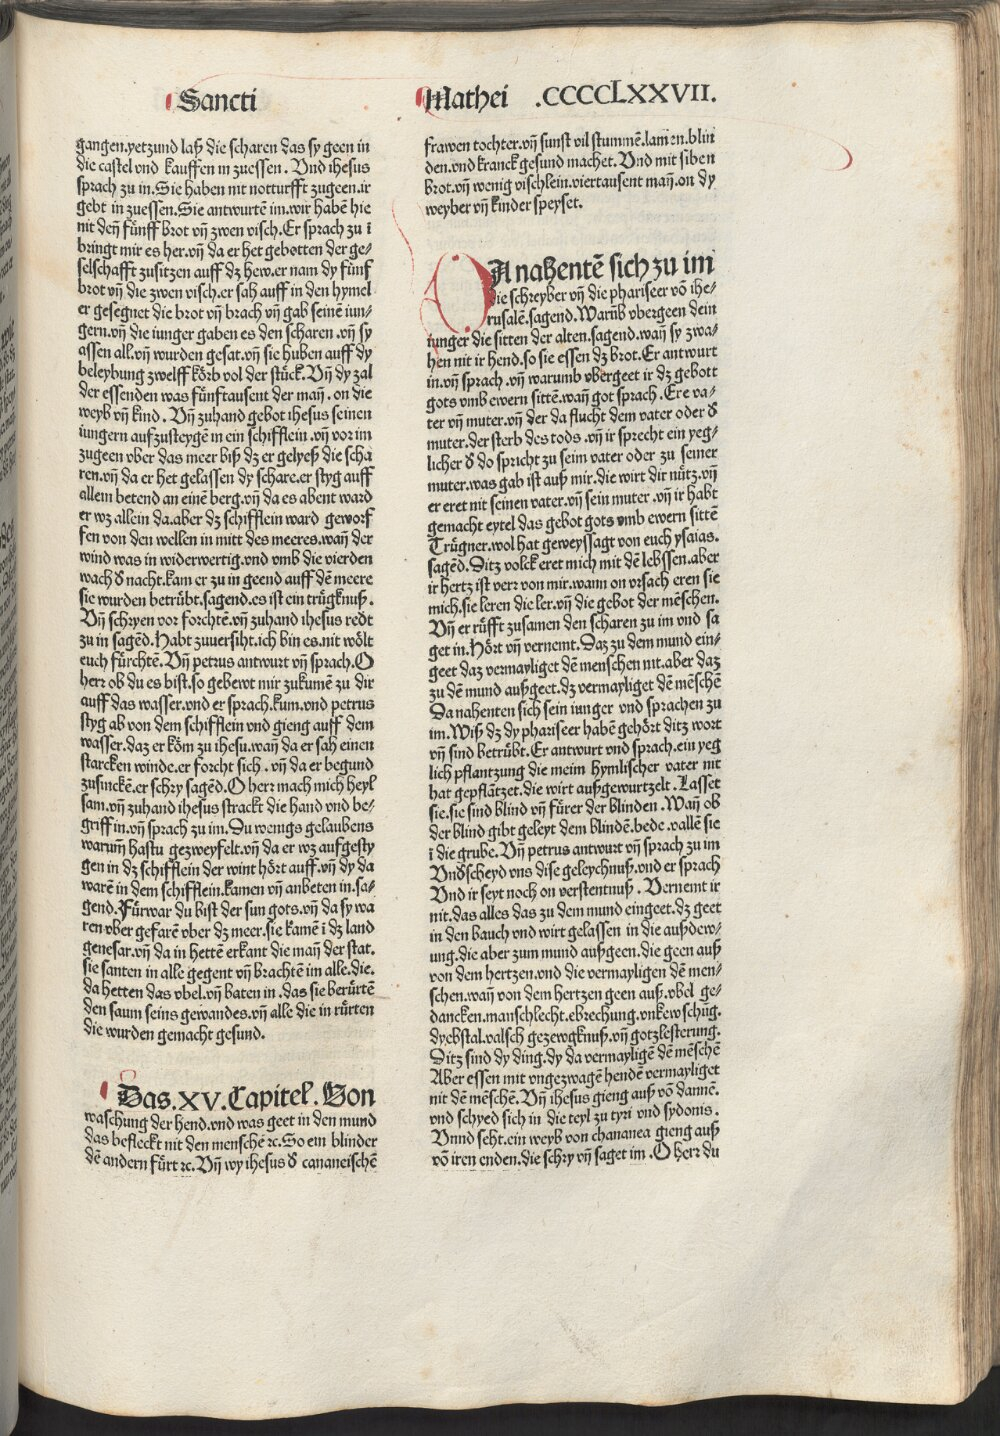 Sancti
Mathei .CCCCLXXVII.
gangen.yetzund laß die scharen das sy geen in
die castel vnd kauffen in zuessen. Vnd ihesus
sprach zu in.Sie haben nit notturfft zugeen.ir
gebt in zuessen.Sie antwurtē im.wir habē hie
nit deñ fünff brot vñ zwen visch.Er sprach zu ī
bringt mir es her.vñ da er het gebotten der ge⸗
selschafft zusitzen auff dz hew.er nam dy fünf
brot vñ die zwen visch.er sah auff in den hymel
er gesegnet die brot vñ brach vñ gab seinē iun⸗
gern.vñ die iunger gaben es den scharen.vñ sy
assen all.vñ wurden gesat.vñ sie huben auff dy
beleybung zwelff körb vol der stück.Vñ dy zal
der essenden was fünftausent der mañ.on die
weyb vñ kind. Vñ zuhand gebot ihesus seinen
iungern aufzusteygē in ein schifflein.vñ vor im
zugeen vber das meer biß dz er gelyeß die scha
ren.vñ da er het gelassen dy schare.er styg auff
allein betend an einē berg.vñ da es abent ward
er wz allein da.aber dz schifflein ward geworf
fen von den wellen in mitt des meeres.wañ der
wind was in widerwertig.vnd vmb die vierden
wach d̄ nacht.kam er zu in geend auff dē meere
sie wurden betrübt.sagend.es ist ein trügknuß.
Vñ schryen vor forchtē.vñ zuhand ihesus redt
zu in sagēd.Habt zuuersiht.ich bin es.nit wölt
euch fürchtē. Vñ petrus antwurt vñ sprach.O
herr ob du es bist.so gebewt mir zukumē zu dir
auff das wasser.vnd er sprach.kum.vnd petrus
styg ab von dem schifflein vnd gieng auff dem
wasser.daz er köm zu ihesu.wañ da er sah einen
starcken winde.er forcht sich. vñ da er begund
zusinckē.er schry sagēd.O herr mach mich heyl
sam.vñ zuhand ihesus strackt die hand vnd be⸗
griff in.vñ sprach zu im.Du wenigs gelaubens
warum̄ hastu gezweyfelt.vñ da er wz aufgesty
gen in dz schifflein der wint hört auff.vñ dy da
warē in dem schifflein.kamen vñ anbeten in.sa⸗
gend.Fürwar du bist der sun gots.vñ da sy wa
ren vber gefarē vber dz meer.sie kamē ī dz land
genesar.vñ da in hettē erkant die mañ der stat.
sie santen in alle gegent vñ brachtē im alle.die.
da hetten das vbel.vñ baten in.das sie berürtē
den saum seins gewandes.vñ alle die in rürten
die wurden gemacht gesund.
Das.XV.Capitel.Von
waschung der hend.vnd was geet in den mund
das befleckt nit den menschē ꝛc.So ein blinder
dē andern fürt ꝛc.Vñ wy ihesus d̄ cananeischē
frawen tochter.vñ sunst vil stummē.lamen.blin
den.vnd kranck gesund machet.Vnd mit siben
brot.vñ wenig vischlein.viertausent mañ.on dy
weyber vñ kinder speyset.
DA nahentē sich zu im
die schreyber vñ die phariseer vō ihe⸗
rusalē.sagend.Warūb vbergeen dein
iunger die sitten der alten.sagend.wañ sy zwa⸗
hen nit ir hend.so sie essen dz brot.Er antwurt
in.vñ sprach.vñ warumb vbergeet ir dz gebott
gots vmb ewern sittē.wañ got sprach.Ere va⸗
ter vñ muter.vñ der da flucht dem vater oder d̄
muter.der sterb des tods.vñ ir sprecht ein yeg⸗
licher d̄ do spricht zu seim vater oder zu seiner
muter.was gab ist auß mir.die wirt dir nütz.vñ
er eret nit seinen vater.vñ sein muter.vñ ir habt
gemacht eytel das gebot gots vmb ewern sittē
Trügner.wol hat geweyssagt von euch ysaias.
sagēd.Ditz volck eret mich mit dē lebssen.aber
ir hertz ist verr von mir.wann on vrsach eren sie
mich.sie leren die ler.vñ die gebot der mēschen.
Vñ er rüfft zusamen den scharen zu im vnd sa
get in.Hört vñ vernemt.Daz zu dem mund ein⸗
geet daz vermayliget dē menschen nit.aber daz
zu dē mund außgeet.dz vermayliget dē mēschē
Da nahenten sich sein iunger vnd sprachen zu
im.Wiß dz dy phariseer habē gehört ditz wort
vñ sind betrübt.Er antwurt vnd sprach.ein yeg
lich pflantzung die meim hymlischer vater nit
hat gepflātzet.die wirt außgewurtzelt. Lasset
sie.sie sind blind vñ fürer der blinden.Wañ ob
der blind gibt geleyt dem blindē.bede.vallē sie
ī die grube. Vñ petrus antwurt vñ sprach zu im
Vnd̄scheyd vns dise geleychnuß.vnd er sprach
Vnd ir seyt noch on verstentnuß. Vernemt ir
nit.das alles das zu dem mund eingeet.dz geet
in den bauch vnd wirt gelassen in die außdew⸗
ung.die aber zum mund außgeen.die geen auß
von dem hertzen.vnd die vermayligen dē men⸗
schen.wañ von dem hertzen geen auß.vbel ge⸗
dancken.manschlecht.ebrechung.vnkewschūg.
dyebstal.valsch gezewgknuß.vñ gotzlesterung.
Ditz sind dy ding.dy da vermayligē dē mēschē
Aber essen mit vngezwagē hendē vermayliget
nit dē mēschē.Vñ ihesus gieng auß vō dannē.
vnd schyed sich in die teyl zu tyri vnd sydonis.
Vnnd seht.ein weyb von chananea gieng auß
vō iren enden.die schry vñ saget im.O herr du